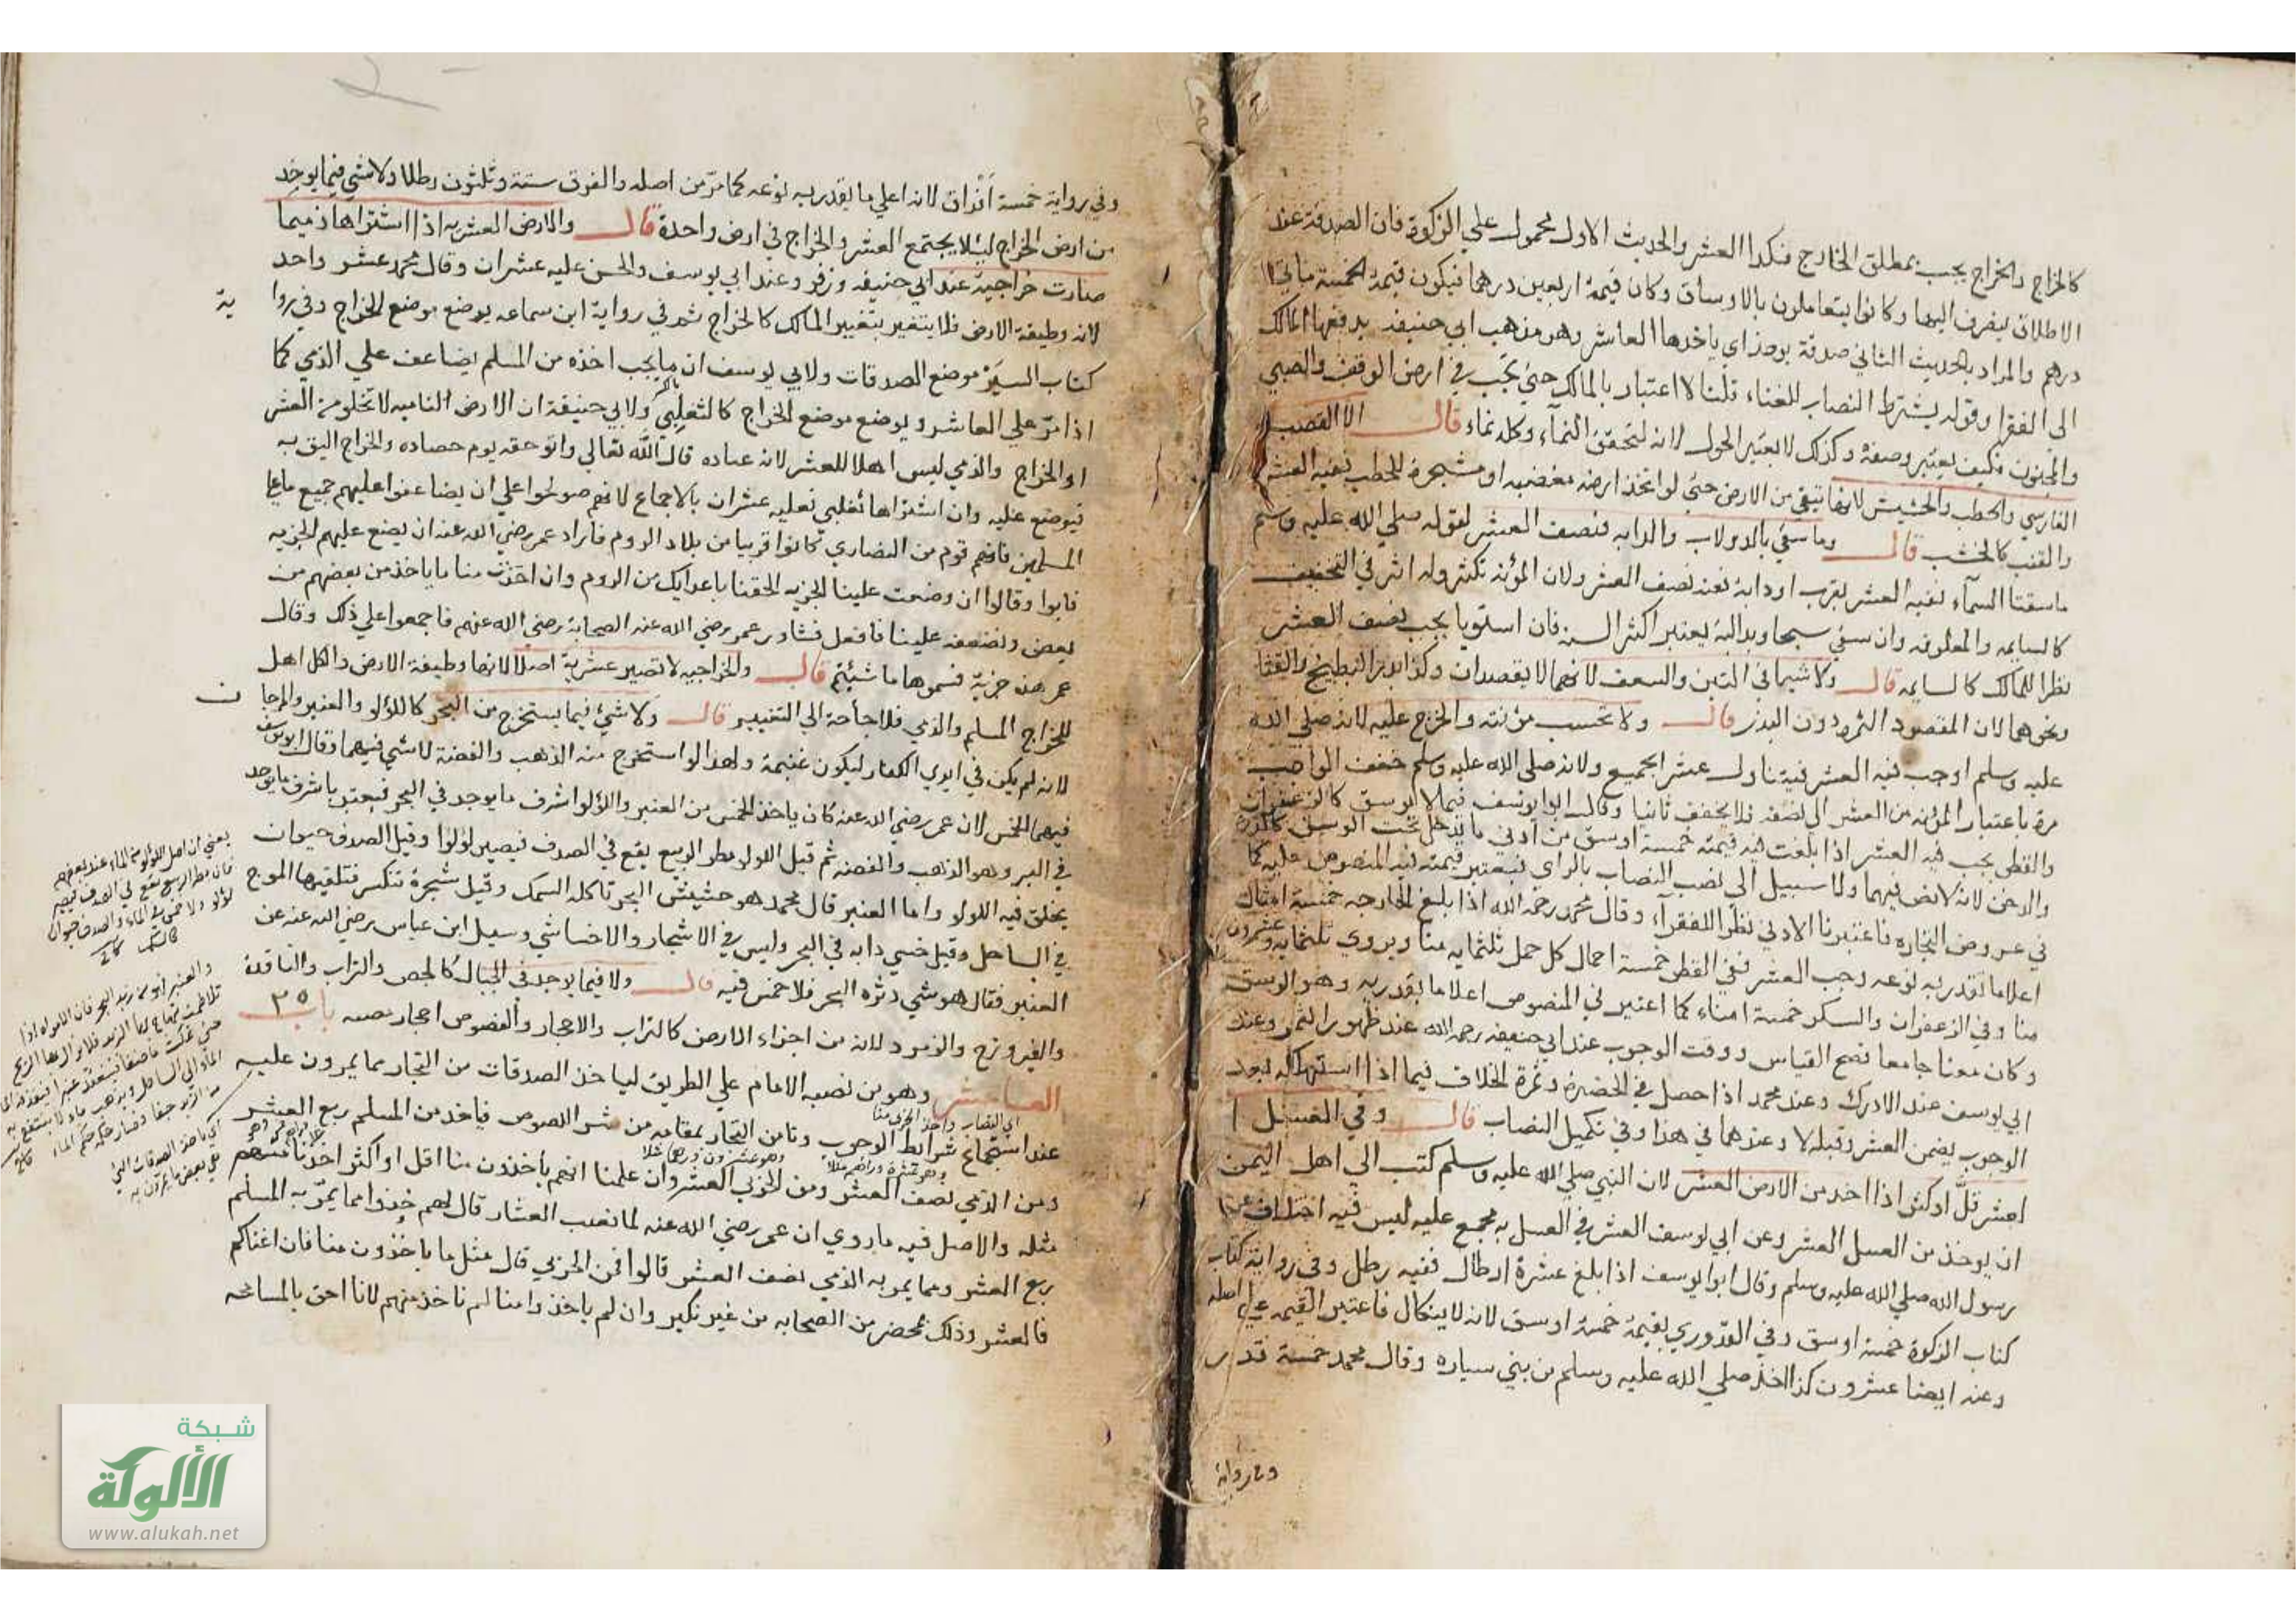 كالخراج والخراج يجب بمطلق الخارج فكذا العشر والحديث الاول محمول علي الزكوة فان الصدقة عند
الاطلاق ينصرف اليها وكانوا يتعاملون بالاوساق وكان قيمة اربعين درهما فيكون قيمة الخمسة مأتي
درهم والمراد بالحديث الثاني صدقة يومذ اي ياخذها العاشر وهو مذهب ابي حنيفه يدفعها المالك
الى الفقرا وقوله يشترط النصاب للغناء قلنا لا اعتبار بالمالك حتي تجب في ارض الوقف والصبي
والمجنون فكيف يعتبر وصفه وكذلك لا يعتبر الحول لانه لتحقق النمآء وكله نماء قال الا القصب
الفارسي والحطب والحشيش لانها تنقي من الارض حتي لو اتخذ ارضه مقصبه او مشجرة للحطب ففيه العشر
والقنب كالخشب قال وما سقي بالدولاب والدابه فنصف العشر لقوله صلي الله عليه وسلم
ما سقتا السمآء ففيه العشر بغرب او دابة ففيه نصف العشر ولان المؤنه تكثر وله اثر في التخفيف
كالسايمه والمعلوفه وان سقي سيحا وبدالية يعتبر اكثر السنه فان استويا يجب نصف العشر
نظرا للمالك كالسايمه قال ولا شي في التبن والسعف لانهما لا يقصدان وكذا بذر البطيخ والقثا
ونحوهما لان المقصود الثمر دون البذر قال ولا تحسب مؤنته والخرج عليه لانه صلي الله
عليه وسلم اوجب فيه العشر فيتناول عشر الجميع ولانه صلى الله عليه وسلم خفف الواجب
مرة باعتبار المؤنه من العشر الى نصفه فلا يخفف ثانيا وقال ابو يوسف فيما لا يوسق كالزعفران
والقطن يجب فيه العشر اذا بلغت قيمته خمسة اوسق من ادني ما يدخل تحت الوسق كالذرة
والدخن لانه لا نص فيهما ولا سبيل الى نصب النصاب بالراي فيعتبر قيمته فيه المنصوص عليه كما
في عروض التجاره فاعتبرنا الادني نظرا للفقرآء وقال محمد رحمه الله اذا بلغ الخارج خمسة امثال
اعلا ما تقدر به نوعه وجب العشر ففي القطن خمسة احمال كل حمل ثلثمايه منا ويروي ثلثمايه وعشرون
منا وفي الزعفران والسكر خمسة امناء كما اعتبر في المنصوص اعلا ما يقدر به وهو الوسق
وكان معنا جامعا فصح القياس ووقت الوجوب عند ابي حنيفه رحمه الله عند ظهور الثمر وعند
ابي يوسف عند الادرك وعند محمد اذا حصل في الحضيرة وثمرة الخلاف فيما اذا استهلكه فبعد
الوجوب يضمن العشر وقبله لا وعندهما في هذا وفي تكميل النصاب قال وفي العسل ا
لعشر قل او كثر اذا اخذ من الارض العشر لان النبي صلي الله عليه وسلم كتب الي اهل اليمن
ان يوخذ من العسل العشر وعن ابي يوسف العشر في العسل به مجمع عليه ليس فيه اختلاف عن
رسول الله صلي الله عليه وسلم وقال ابو يوسف اذا بلغ عشرة ارطال ففيه رطل وفي رواية كتاب
كتاب الزكوة خمسة اوسق وفي القدوري بقيمة خمسة اوسق لانه لا ينكال فاعتبر القيمه علي اصله
وعنه ايضا عشرون كذا اخذ صلي الله عليه وسلم من بني سياره وقال محمد خمسة قدر
وفي رواية
وفي رواية خمسة أفراق لانه اعلي ما يقدر به نوعه كما مر من اصله والفرق ستة وثلثون رطلا ولا شي فيما يوجد
من ارض الخراج ليلا يجتمع العشر والخراج في ارض واحدة قال والارض العشريه اذا اشتراها ذمي ما
صارت خراجية عند ابي حنيفه وزفر وعند ابي يوسف والحسن عليه عشران وقال محمد عشر واحد
لانه وظيفة الارض فلا يتغير بتغيير المالك كالخراج ثم في رواية ابن سماعه يوضع موضع الخراج وفي روا ية
كتاب السير موضع الصدقات ولابي يوسف ان ما يجب اخذه من المسلم يضاعف علي الذمي كما
اذا مر علي العاشر ويوضع موضع الخراج كالتغلبي ولابي حنيفة ان الارض الناميه لا تخلو من العشر
او الخراج والذمي ليس اهلا للعشر لانه عباده قال الله تعالي واتو حقه يوم حصاده والخراج اليق به
فيوضع عليه وان اشتراها تغلبي فعليه عشران بالاجماع لانهم صولحوا علي ان يضاعفوا عليهم جميع ما علي
المسلمين فانهم قوم من النصاري كانوا قريبا من بلاد الروم فاراد عمر رضي الله عنه ان يضع عليهم الجزيه
فابوا وقالوا ان وضعت علينا الجزيه الحقنا باعدايك من الروم وان اخذت منا ما ياخذ من بعضهم من
بعض وتضعفه علينا فافعل فشاور عمر رضي الله عنه الصحابة رضي الله عنهم فاجمعوا علي ذلك وقال
عمر هذه جزية فسموها ما شيئتم قال والخراجيه لا تصير عشرية اصلا لانها وظيفة الارض والكل اهل
للخراج المسلم والذمي فلا حاجة الي التغيير قال ولا شيء فيما يستخرج من البحر كاللؤلو والعنبر والمرجا ن
لانه لم يكن في ايدي الكفار ليكون غنيمة ولهذا لو استخرج منه الذهب والفضة لا شي فيهما وقال ابو يوسف
فيهما الخمس لان عمر رضي الله عنه كان ياخذ الخمس من العنبر واللؤلوا شرف ما يوجد في البحر فيعتبر باشرف ما يوجد
في البر وهو الذهب والفضه ثم قيل اللولو مطر الربيع يقع في الصدف فيصير لؤلؤا وقيل الصدف حيوان
يخلق فيه اللولو واما العنبر قال محمد هو حشيش البحر تاكله السمك وقيل شجرة تنكسر فتلقيها الموج
في الساحل وقيل خسي دابه في البحر وليس في الاشجار والاخسا شي وسيل ابن عباس رضي الله عنه عن
العنبر فقال هو شي دثره البحر فلا خمس فيه قال ولا فيما يوجد في الجبال كالجص والتراب والنافدة
والفيروزج والزمرد لانه من اجزاء الارض كالتراب والاحجار والفصوص احجار مضيه باب ٣٥
العاشر وهو من نصبه الامام علي الطريق لياخذ الصدقات من التجار مما يمرون عليه
عند استجماع شرائط الوجوب وتامن التجار بمقامه من شر اللصوص فياخذ من المسلم ربع العشر
ومن الذمي نصف العشر ومن الحزبي العشر وان علمنا انهم يأخذون منا اقل او اكثر اخذنا منهم
مثله والاصل فيه ما روي ان عمر رضي الله عنه لما نصب العشار قال لهم خذوا مما يمر به المسلم
ربع العشر ومما يمر به الذمي نصف العشر قالوا فمن الحزبي قال مثل ما ياخذون منا فان اغناكم
فالعشر وذلك بمحضر من الصحابه من غير نكير وان لم ياخذوا منا لم ناخذ منهم لانا احق بالمسامحه
يعني ان اصل اللؤلؤ من الماء عند بعضهم
فان مطر الربيع يقع في الصدف فيصير
لؤلؤ ولا خمس في الماء والصدف حيوان
كالسمك
شبكة
الألوكة
www.alukah.net